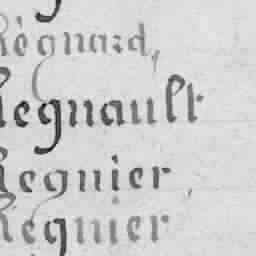 Régnard,
Regnault
Regnier,
Regnier